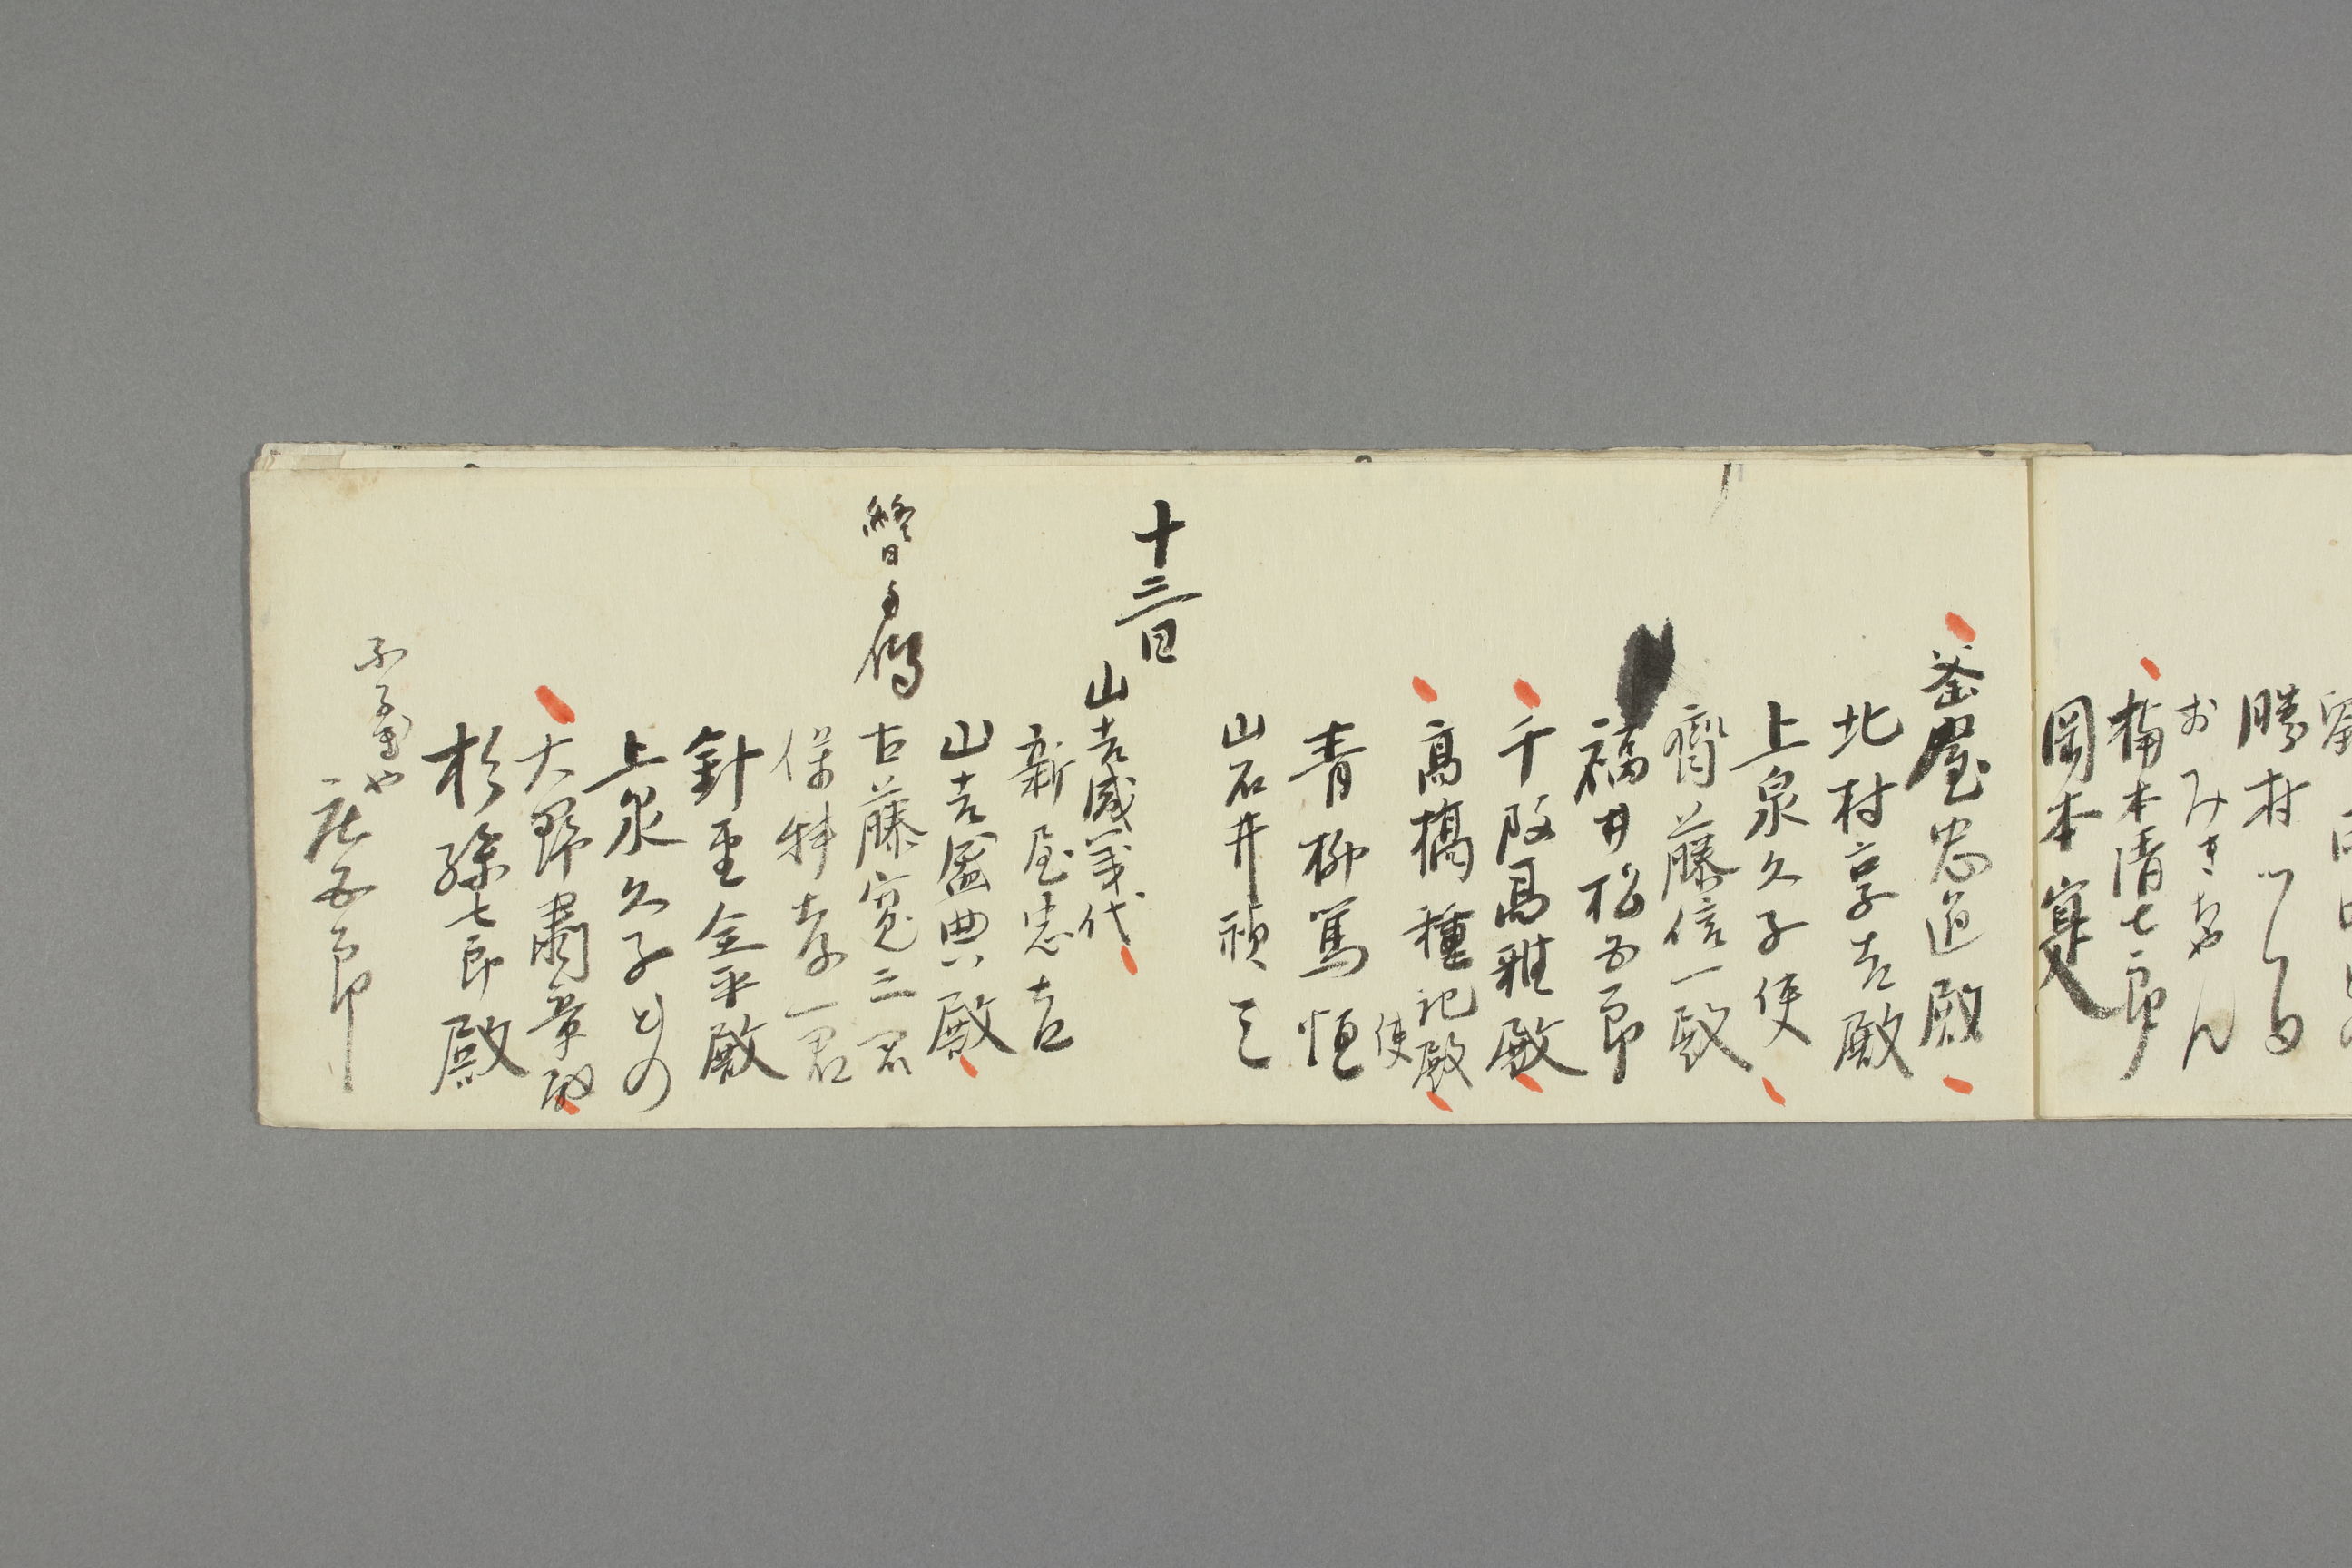 勝村つる
おみきちやん
楠本清七郎
岡本寔
釜屋忠道殿
北村享吉殿
上泉久子使
齋藤信一殿
福井松五郎
千阪高雅殿
高橋種記殿
使
青柳篤恒
山石井禎三
十三日
山吉盛義代
新屋忠吉
山吉盛典殿
古藤寛三君
保科孝一君
針重金平殿
上泉久子との
大野粛章殿
杉孫七郎殿
庄五郎